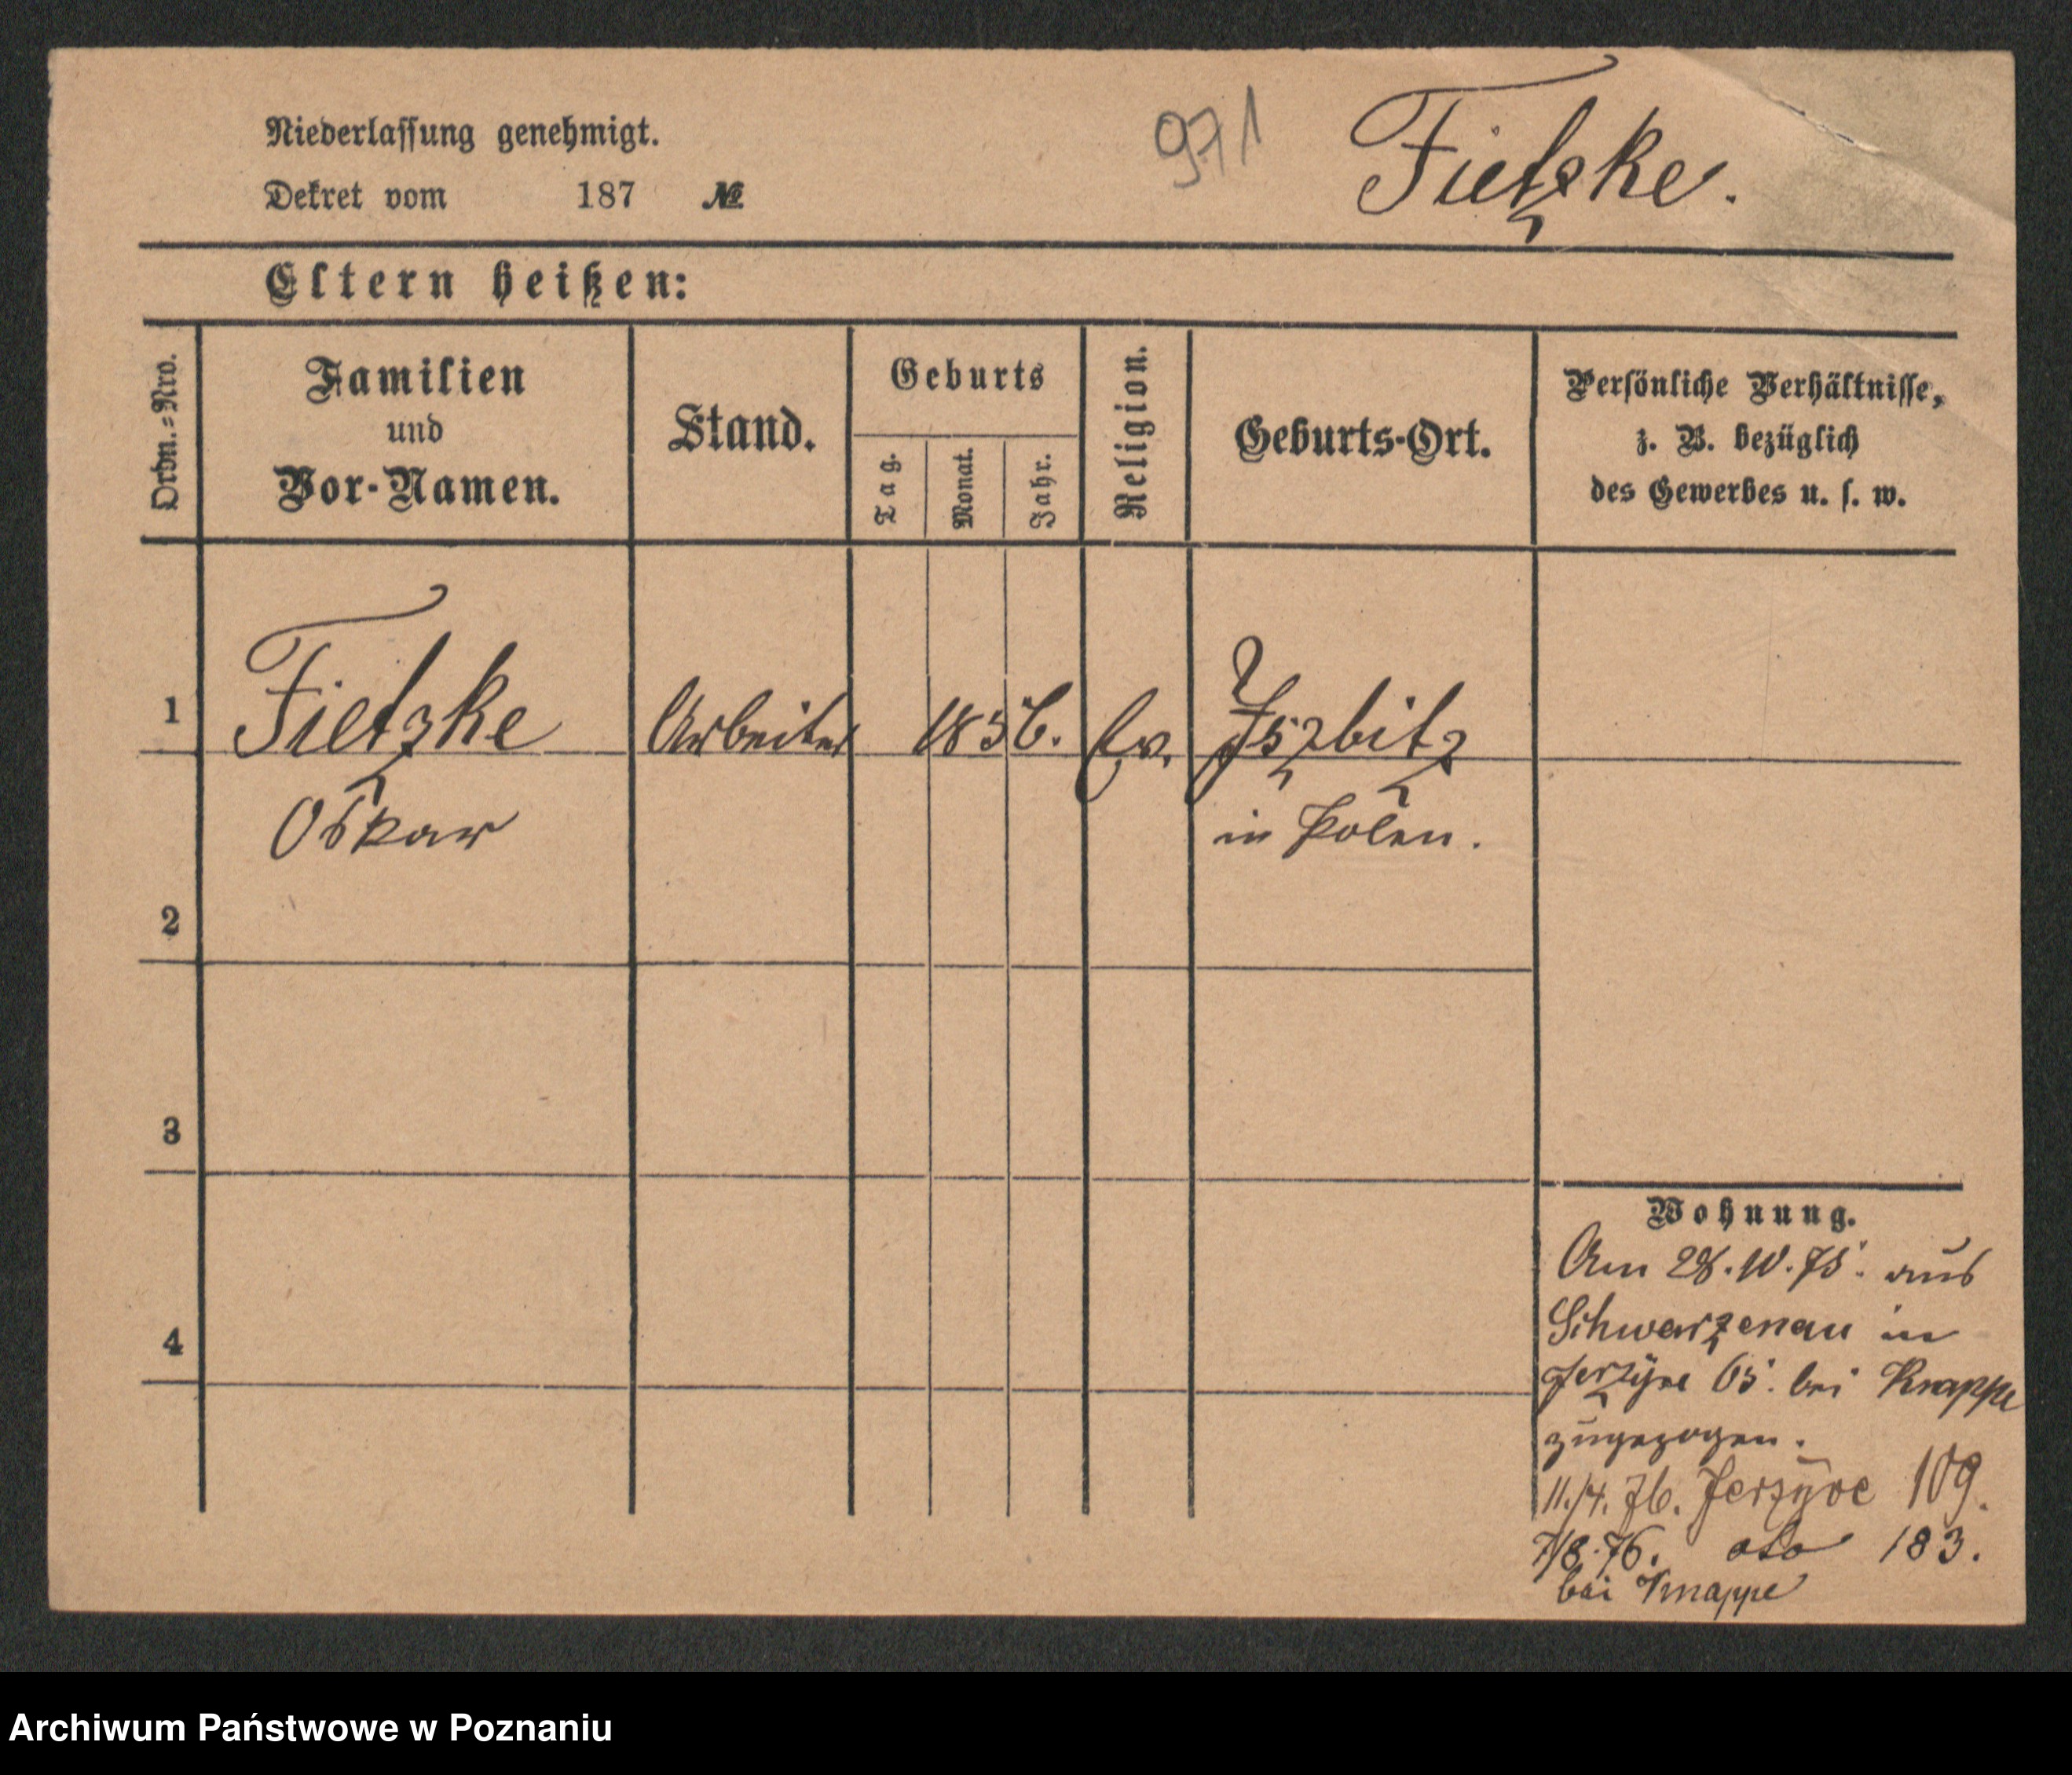 Niederlassung genehmigt.
Dekret vom 187 №
971
Fietzke.
Eltern heißen:
Ordn.=Nro.
Familien
und
Vor-Namen.
Stand.
Geburts
Tag.
Monat.
Jahr.
Religion.
Geburts-Ort.
Persönliche Verhältnisse,
z. B. bezüglich
des Gewerbes u. s. w.
1
Fietzke
Arbeiter
1856.
Ev.
Iszbitz
Oskar
in Polen.
2
3
4
Wohnung.
Am 28.10.75. aus
Schwarzenau in
Jerzyce 65. bei Knappe
zugezogen.
11./4. 76. Jerzyce 109.
7/8.76. oto 183.
bei Knappe
Archiwum Państwowe w Poznaniu